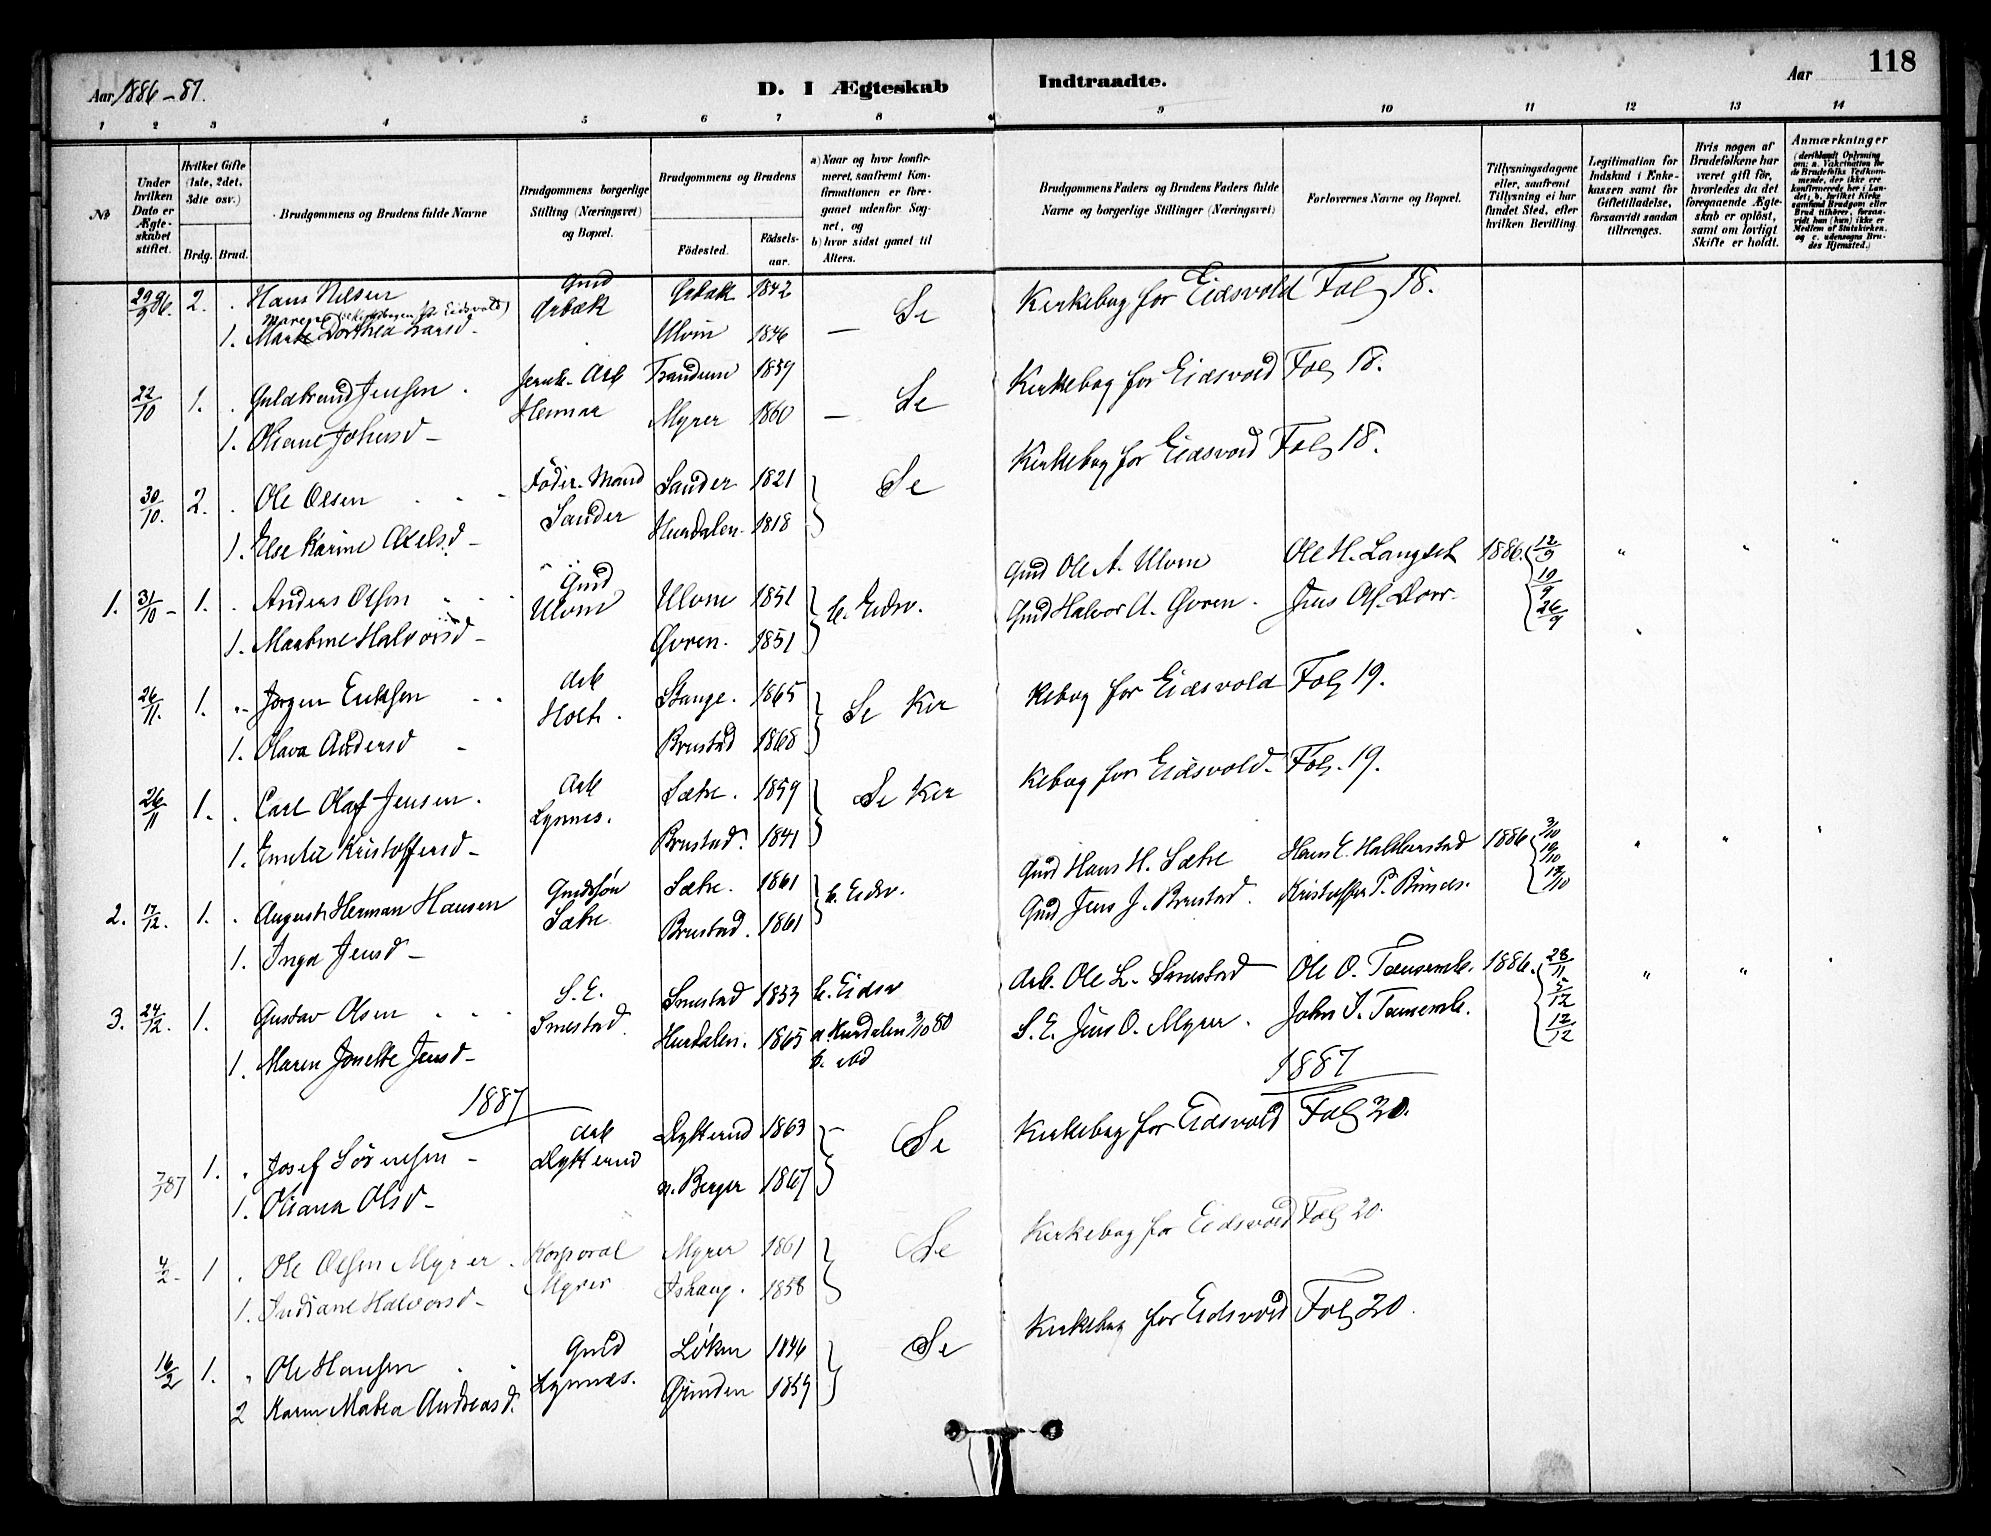 Aar 1886-87. D. I Ægteskab Indtraadte. Aar 118
1 2 3 4 5 6 7 8 9 10 11 12 13 14
No
Under hvilken Dato er Ægteskabet stiftet.
Hvilket Gifte (1ste, 2det, 3die osv.) Brdg. Brud.
Brudgommens og Brudens fulde Navne
Brudgommens borgerlige Stilling (Næringsvei) og Bopæl.
Brudgommens og Brudens Fødested. Fødselsaar.
a) Naar og hvor konfirmeret, saafremt Konfirmationen er foregaaet udenfor Sognet, og
b) hvor sidst gaaet til Alters.
Brudgommens Faders og Brudens Faders fulde Navne og borgerlige Stillinger (Næringsvei)
Forlovernes Navne og Bopæl.
Tillysningsdagene eller, saafremt Tillysning ei har fundet Sted, efter hvilken Bevilling.
Legitimation for Indskud i Enkekassen samt for Giftetilladelse, forsaavidt saadan tiltrænges.
Hvis nogen af Brudefolkene har været gift før, hvorledes da det foregaaende Ægteskab er opløst, samt om lovligt Skifte er holdt.
Anmærkninger (deriblandt Oplysning om: a. Vakcination for de Brudefolks Vedkommende, der ikke ere konfirmerede her i Landet; b. hvilket Kirkesamfund Brudgom eller Brud tilhører, forsaavidt han (hun) ikke er Medlem af Statskirken, og c. udensogns Brudes Hjemsted.)
29/9 86. 2. Hans Nilsen Gmd Ørbæk Ørbæk 1842 Se Kirkebog for Eidsvold Fol 18.
Marenе (se Kirkebogen for Eidsvold)
1. Marte Dorthea Larsd. Ulvin 1846
22/10 1. Guldbrand Jensen. Jernb. Arb Trandum 1859 Se Kirkebog for Eidsvold Fol 18.
1. Oliane Johnsd Hennar Myrer 1860
30/10. 2. Ole Olsen Føder. Mand Sander 1821 Se Kirkebog for Eidsvold Fol 18.
1. Else Karine Axelsd Sander Hurdalen. 1818
1. 31/10 1. Anders Olson Gmd Ulvin Ulvin 1851 b. Eidsv. Gmd Ole A. Ulvin Ole H. Langset 1886. 12/9 19/9 26/9
1. Martine Halvorsd Øvren. 1851 Gmd Halvor A. Øvren. Jens Ol. Dorr.
26/11. 1. Jørgen Eriksen Arb Holt. Stange. 1865 Se Kirkebog for Eidsvold Fol 19.
1. Olava Andersd Brustad 1868
26/11 1. Carl Olaf Jensen. Arb Lynnes. Sætre. 1859 Se Kirkebog for Eidsvold. Fol. 19.
1. Emelie Kristoffersd Brustad. 1841
2. 17/12. 1. August Herman Hansen Gmdsøn Sætre Sætre. 1861 b. Eidsv. Gmd Hans H. Sætre Hans E. Halderstad 1886 3/10 10/10 17/10
1. Inga Jensd Brustad. 1861 Gmd Jens J. Brustad. Kristoffer P. Bundes.
3. 24/12. 1. Gustav Olsen S. E. Smestad. Smestad 1853 b. Eidsv Arb. Ole L. Smestad Ole O. Tømmerb. 1886. 28/11 5/12 12/12
1. Maren Jonette Jensd Hurdalen. 1865 a. Hurdalen 3/10 80 b. ibd S. E. Jens O. Myrer. John I. Tømmerb.
1887 1887
7/1 87 1. Josef Sørensen Arb Dytterud Dytterud 1863 Se Kirkebog for Eidsvold Fol 20.
1. Oliana Olsd n. Berger 1867
4/2 1 Ole Olsen Myrer. Korporal Myrer Myrer 1861 Se Kirkebog for Eidsvold Fol 20.
1. Indiane Halvorsd Ishaug. 1858
16/2 1. Ole Hansen Gmd Lynnes. Løken 1846 Se Kirkebog for Eidsvold Fol 20.
2 Karen Mathea Andreasd. Grinden 1859